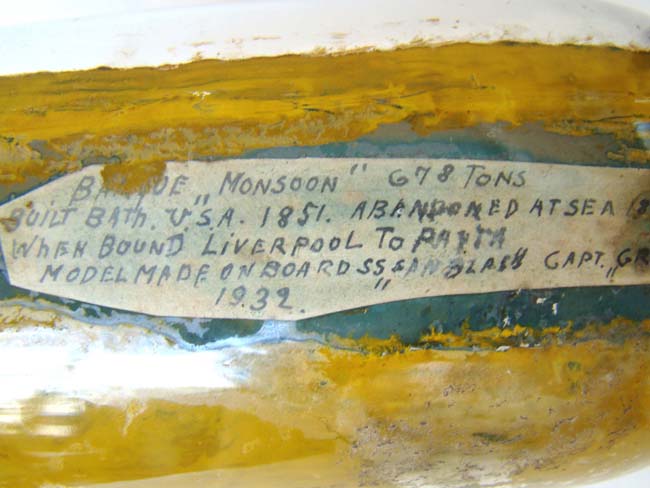 BARQUE „MONSOON" 678 TONS
BUILT BATH. U.S.A. 1851. ABANDONED AT SEA 18
WHEN BOUND LIVERPOOL TO
MODEL MADE ON BOARD SS „SAN BLAS" CAPT. „GR
1932.